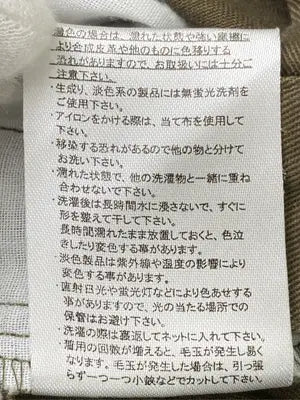 濃色の場合は、濡れた状態や強い摩擦に
より合成皮革や他のものに色移りする
恐れがありますので、お取扱いには十分ご
注意下さい。
・生成り、淡色系の製品には無蛍光洗剤を
ご使用下さい。
・アイロンをかける際は、当て布を使用して
下さい。
・移染する恐れがあるので他の物と分けて
お洗い下さい。
・濡れた状態で、他の洗濯物と一緒に重ね
合わせないで下さい。
・洗濯後は長時間水に浸さないで、すぐに
形を整えて干して下さい。
長時間濡れたまま放置しておくと、色泣
きしたり変色する事があります。
・淡色製品は紫外線や湿度の影響により
変色する事があります。
・直射日光や蛍光灯などにより色あせする
事がありますので、光の当たる場所での
保管はお避け下さい。
・洗濯の際は裏返してネットに入れて下さい。
・着用の回数が増えると、毛玉が発生し易く
なります。毛玉が発生した場合は、引っ張
らず一つ一つ小鋏などでカットして下さい。